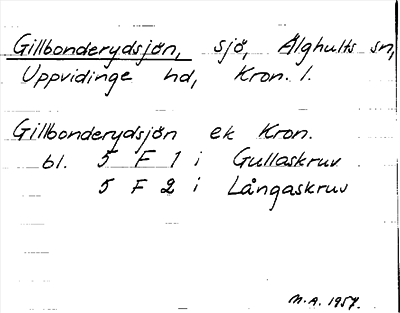 Gillbonderydsjön, sjö, Älghults sn,
Uppvidinge hd, Kron. l.
Gillbonderydsjön ek Kron.
bl. 5 F 1 i Gullaskruv
5 F 2 i Långaskruv
M.A. 1957.